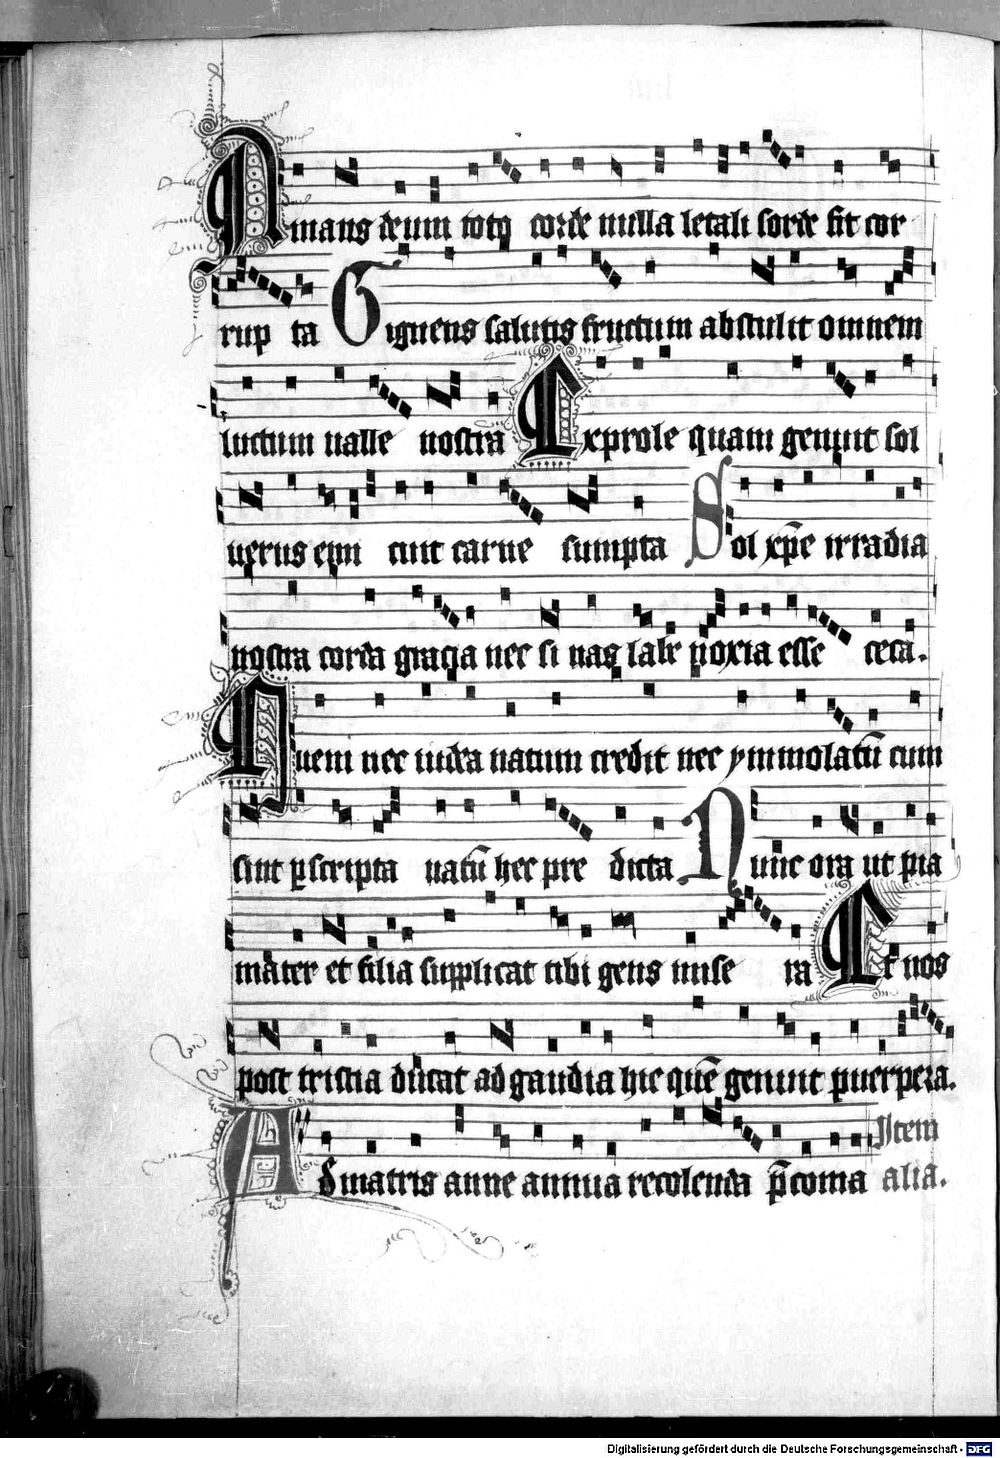 Amans deum toto corde nulla letali sorde fit cor
rup ta Gignens salutis fructum abstulit omnem
luctum ualle nostra Exprole quam genuit sol
uerus enim cuit carne sumpta Sol xpe irradia
nostra corda gracia nec si nas labe noxia esse ceca.
Quem nec iudea natum credit nec ymmolatū cum
sint pscripta uatū hec pre dicta Nunc ora ut pia
mater et filia supplicat tibi gens mise ra Et nos
post tristia ducat ad gaudia hic quē genuit puerpera.
Item
Ad matris anne annua recolenda p̄coma alia.
Digitalisierung gefördert durch die Deutsche Forschungsgemeinschaft - DFG